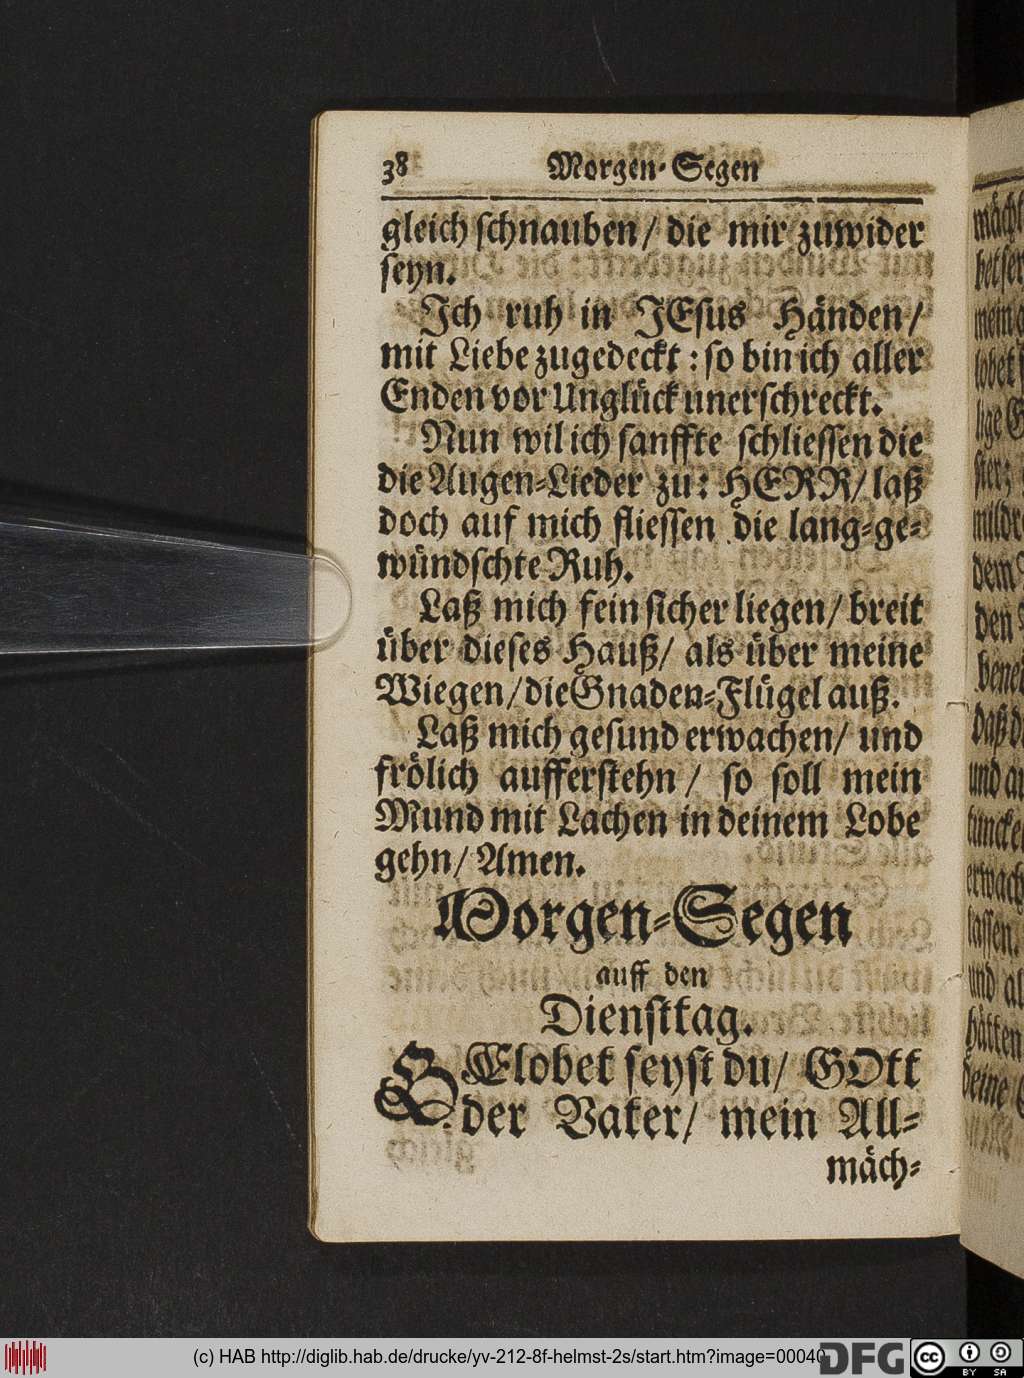 38 Morgen-Segen
gleich schnauben/ die mir zuwider
seyn.
Ich ruh in JEsus Händen/
mit Liebe zugedeckt: so bin ich aller
Enden vor Unglück unerschreckt.
Nun wil ich sanffte schliessen die
die Augen-Lieder zu: HERR/ laß
doch auf mich fliessen die lang-ge-
wündschte Ruh.
Laß mich fein sicher liegen/ breit
über dieses Hauß/ als über meine
Wiegen/ die Gnaden-Flügel auß.
Laß mich gesund erwachen/ und
frölich aufferstehn/ so soll mein
Mund mit Lachen in deinem Lobe
gehn/ Amen.
Morgen-Segen
auff den
Diensttag.
GElobet seyst du/ GOtt
der Vater/ mein All-
mäch-
(c) HAB http://diglib.hab.de/drucke/yv-212-8f-helmst-2s/start.htm?image=00040
DFG
cc BY SA